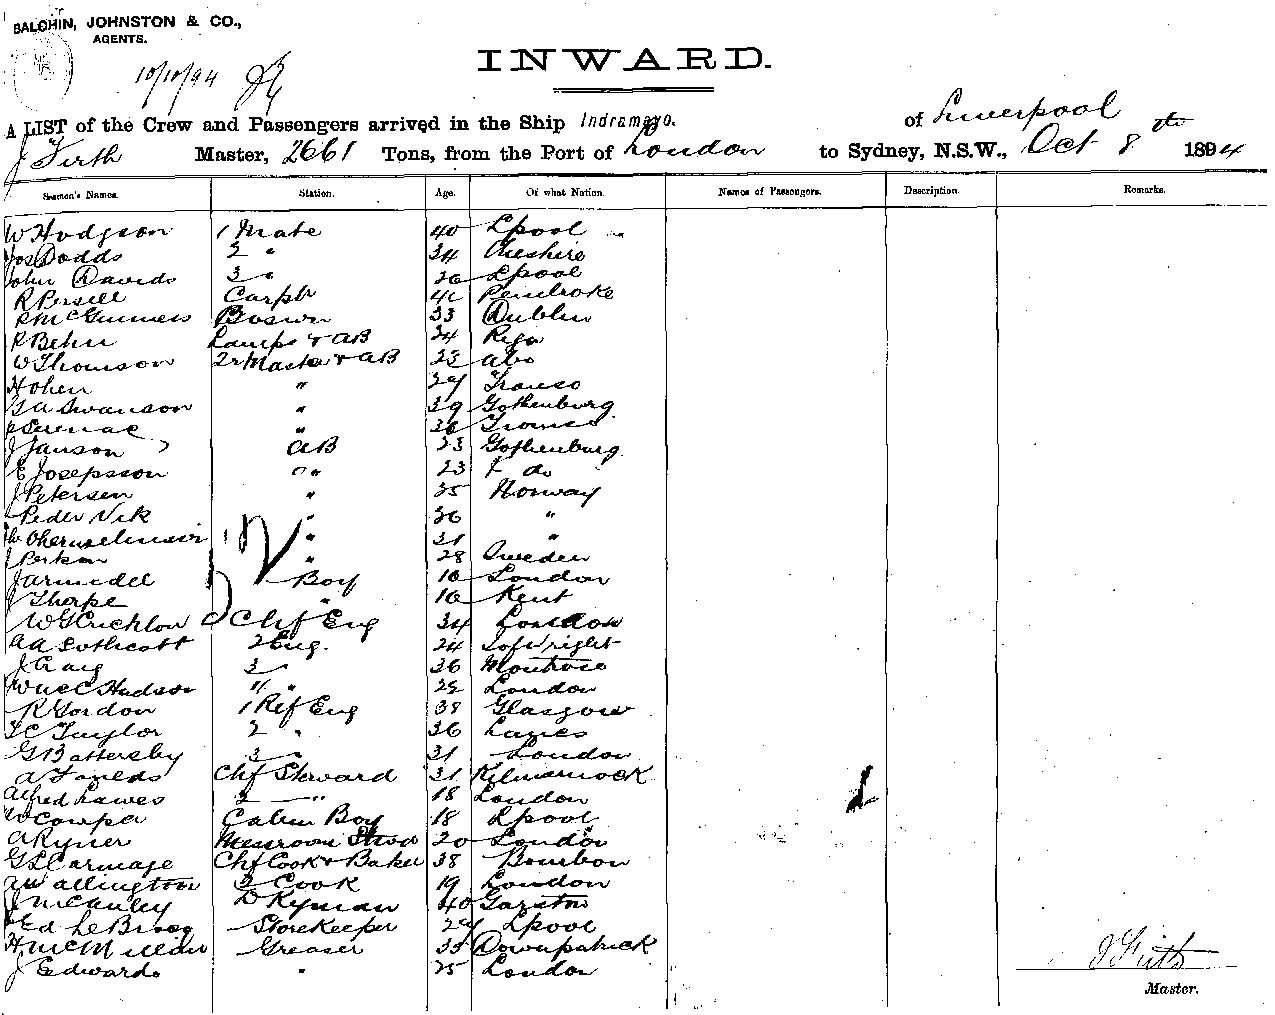 BALCHIN, JOHNSTON & CO.,
AGENTS.
10/10/94
INWARD.
A LIST of the Crew and Passengers arrived in the Ship Indramayo. of Liverpool
J Firth Master, 2661 Tons, from the Port of London to Sydney, N.S.W., Oct 8th 1894
Seamen's Names. Station. Age. Of what Nation. Names of Passengers. Description. Remarks.
W Hodgson 1 Mate 40 Lpool
Jos Dodds 2 " 34 Cheshire
John Davids 3 " 26 Lpool
R Persell Carptr Pembroke
R McGuiness Boswn 33 Dublin
R Behn Lamps & AB 24 Riga
W Thomson 2r Master & AB 23 Abo
Hohen " 27 Tromso
G A Swanson " 39 Gothenburg
" 36 Tromso
J Janson AB 23 Gothenburg
E Josepsson " 23 do
J Petersen " 35 Norway
Peder Vik " 36 "
" 31 "
" 28 Sweden
J Boy 16 London
J Thorpe " 16 Kent
W G Crichton Chf Eng 34 London
A A Southcott 2 Eng. 24
J Craig 3 " 36 Montrose
Wm C Hudson 4 " London
R Gordon 1 Ref Eng 38 Glasgow
T C Taylor 2 " 36 Lancs
G Battersby 3 " 31 London
A Foulds Chf Steward 31 Kilmarnock
Alfred Lawes 2 " 18 London
W Cowpa Cabin Boy 18 Lpool
A Ryner Messroom Stwd 20 London
G L Carmage Chf Cook & Baker 38 Bourbon
A Wallington 2 Cook 19 London
J McCauley Dkyman 40 Garston
Ed Le Brocq Storekeeper 29 Lpool
H McMillan Greaser 35 Downpatrick
J Edwards " 25 London
J Firth
Master.